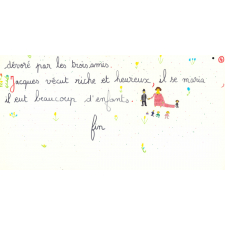 dévoré par les trois amis.
Jacques vécut riche et heureux, il se maria
il eut beaucoup d'enfants.
fin